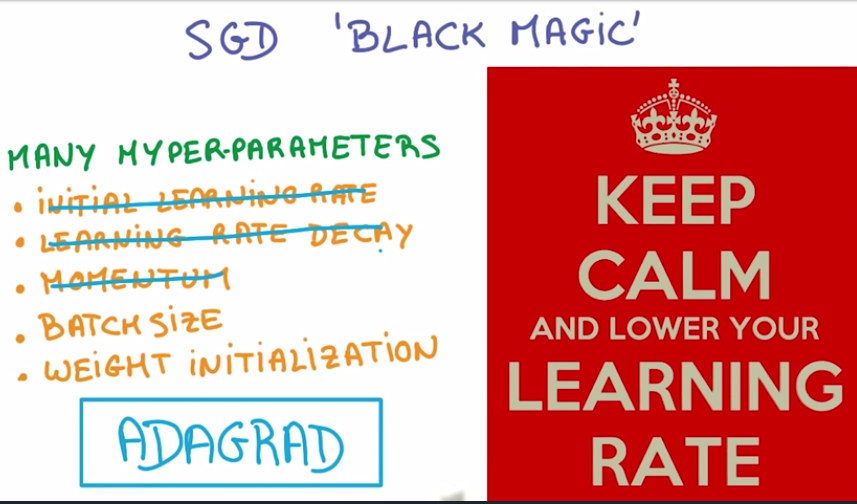 SGD 'BLACK MAGIC'
MANY HYPER-PARAMETERS
• INITIAL LEARNING RATE
• LEARNING RATE DECAY
• MOMENTUM
• BATCH SIZE
• WEIGHT INITIALIZATION
ADAGRAD
KEEP
CALM
AND LOWER YOUR
LEARNING
RATE